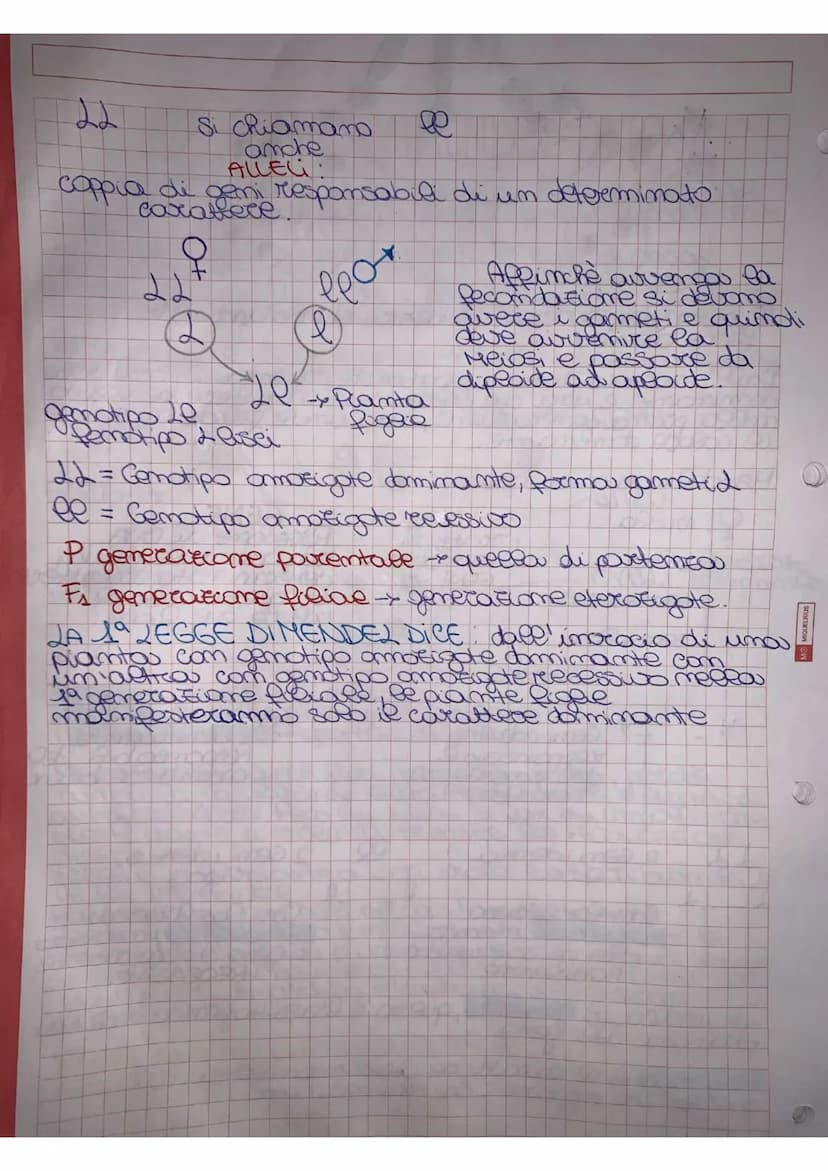 LL si chiamano ll
anche
ALLELI:
coppia di geni responsabili di un determinato
carattere.
♀ ♂
LL ll
L l
Ll → Pianta
figlia
Affinchè avvenga la
fecondazione si devono
avere i gameti e quindi
deve avvenire la
Meiosi e passare da
diploide ad aploide.
genotipo Ll
fenotipo Lisci
LL = Genotipo omozigote dominante, forma gameti L
ll = Genotipo omozigote recessivo
P generazione parentale → quella di partenza
F1 generazione filiale → generazione eterozigote.
LA 1ª LEGGE DI MENDEL DICE: dall'incrocio di una
pianta con genotipo omozigote dominante con
un'altra con genotipo omozigote recessivo nella
1ª generazione filiale, le piante figlie
manifesteranno solo il carattere dominante
MIQUELRIUS